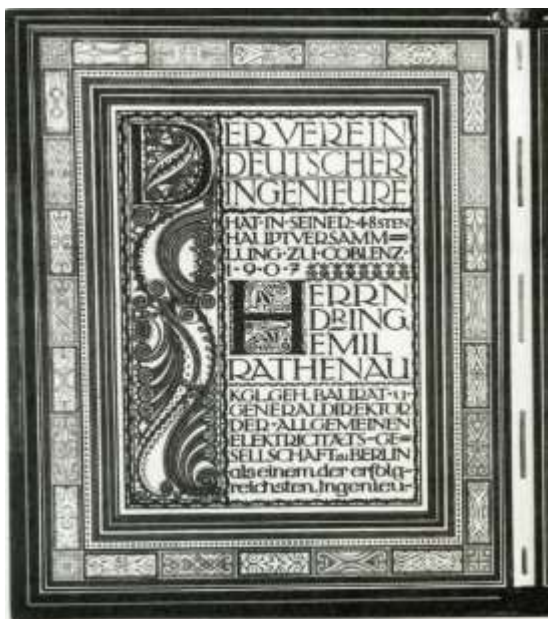 DER VEREIN
DEUTSCHER
INGENIEURE
HAT·IN·SEINER·48STEN
HAUPTVERSAMM=
LUNG·ZU·COBLENZ·
1·9·0·7
HERRN
DR ING.
EMIL
RATHENAU
KGL.GEH.BAURAT·U·
GENERALDIREKTOR
DER·ALLGEMEINEN
ELEKTRICITÆTS=GE=
SELLSCHAFT ZU BERLIN
als einem.der erfolg=
reichsten.Ingenieu=